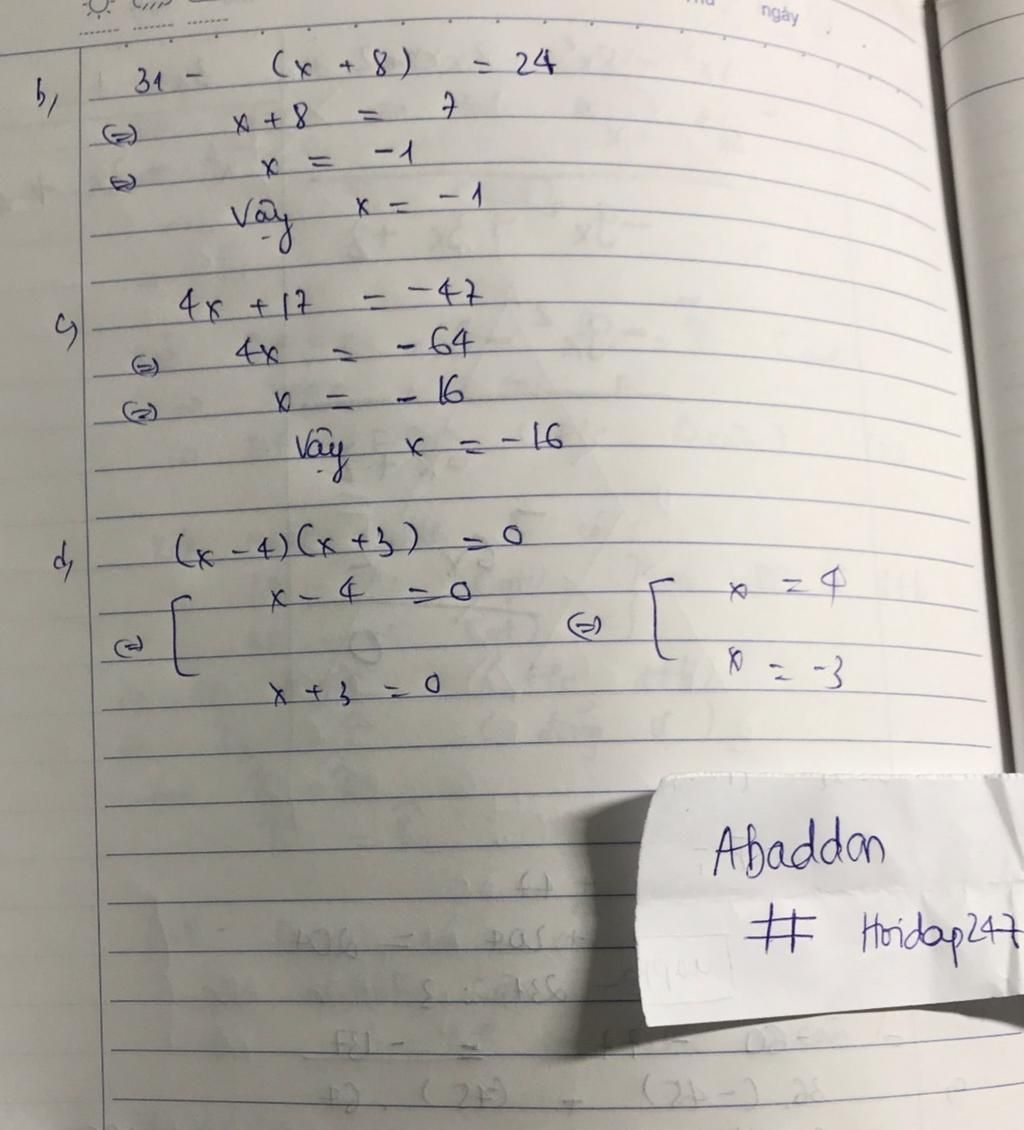 ngày
b, 31 - (x + 8) = 24
(=) x + 8 = 7
(=) x = -1
Vậy x = -1
c, 4x + 17 = -47
(=) 4x = -64
(=) x = -16
Vậy x = -16
d, (x - 4)(x + 3) = 0
(=) [ x - 4 = 0 (=) [ x = 4
x + 3 = 0 x = -3
Abaddon
# Hoidap247